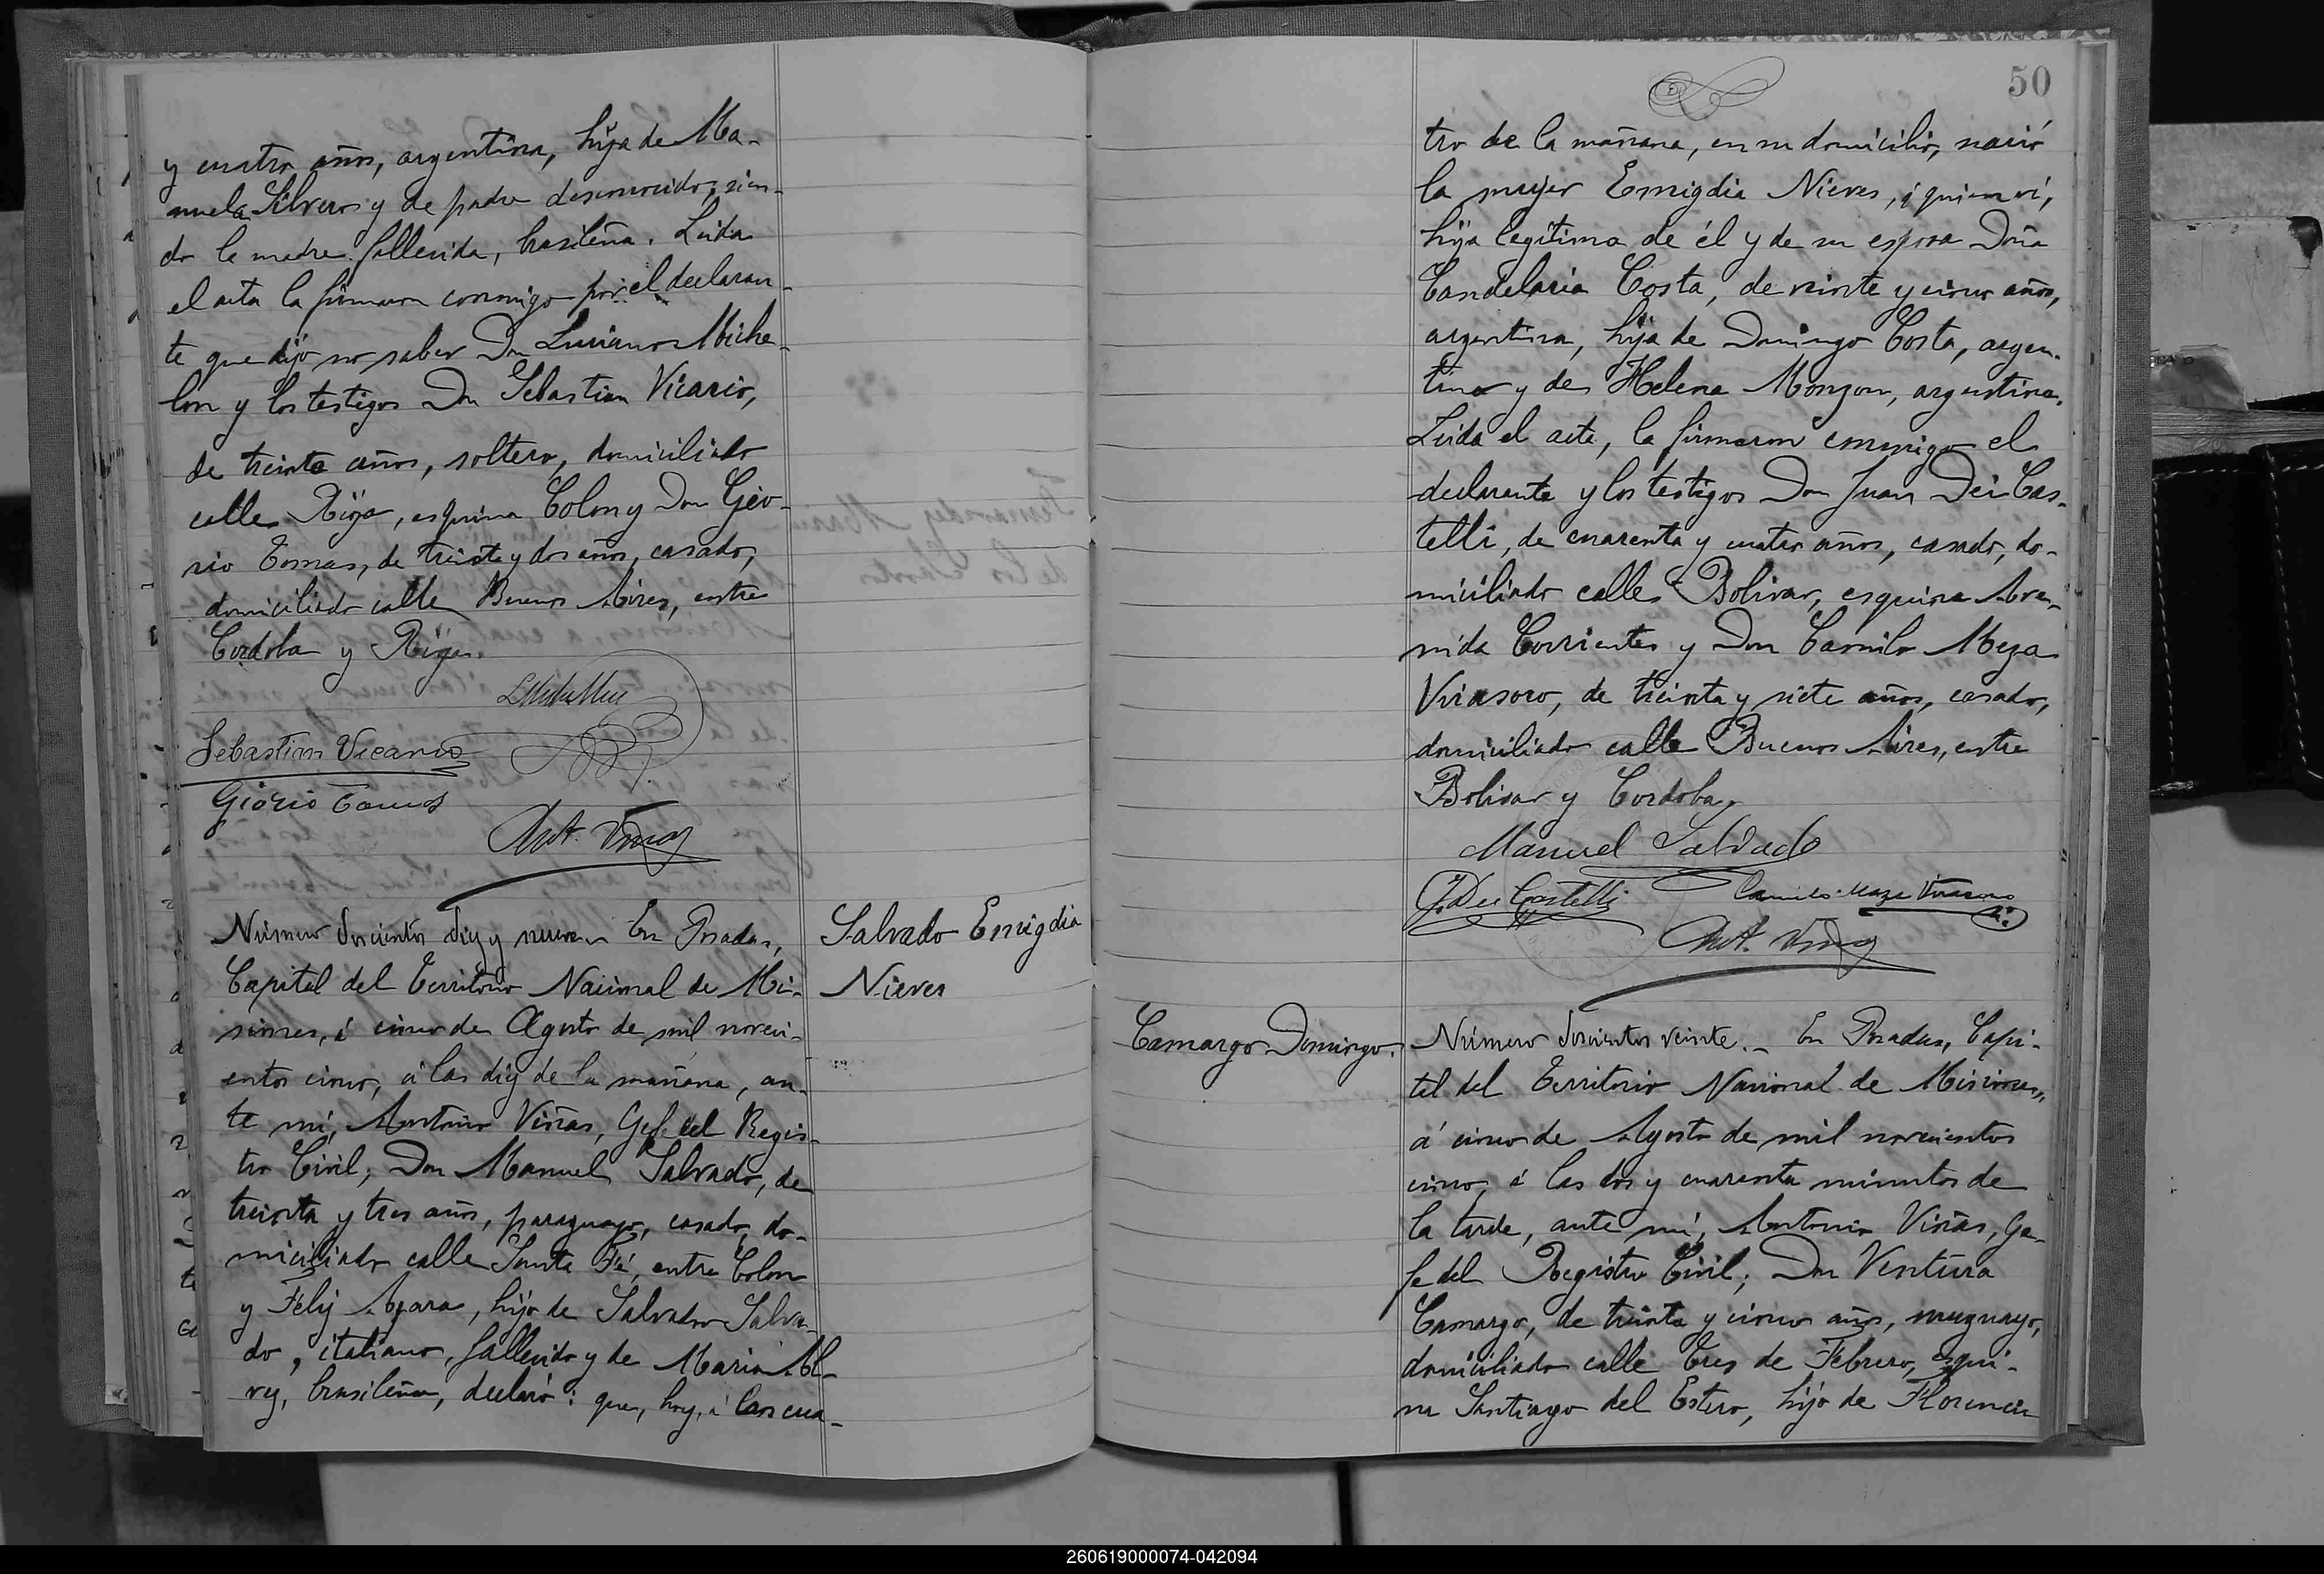 y cuatro años, argentina, hija de Ma-
nuela Silvero y de padre desconocido, sien-
do la madre fallecida, brasileña. Leida
el acta la firmaron conmigo por el declaran-
te que dijo no saber Don Luciano Miche-
lon y los testigos Don Sebastian Vicario,
de treinta años, soltero, domiciliado
calle Rioja, esquina Colon y Don Gio-
rio Tomas, de treinta y dos años, casado,
domiciliado calle Buenos Aires, entre
Cordoba y Rioja.
Sebastian Vicario
Giorio Tomas
Ant. Viñas
Número doscientos diez y nueve. En Posadas,
Capital del Territorio Nacional de Mi-
siones, á cinco de Agosto de mil noveci-
entos cinco, á las diez de la mañana, an-
te mi, Antonio Viñas, Gefe del Regis-
tro Civil; Don Manuel Salvado, de
treinta y tres años, paraguayo, casado, do-
miciliado calle Santa Fé, entre Colon
y Feliz Azara, hijo de Salvador Salva-
do, italiano, fallecido y de Maria Al-
vez, brasileña, declaró: que, hoy, á las cua-
Salvado Emigdia
Nieves
50
tro de la mañana, en su domicilio, nació
la mujer Emigdia Nieves, á quien ví,
hija legítima de él y de su esposa Doña
Candelaria Costa, de veinte y cinco años,
argentina, hija de Domingo Costa, argen-
tino y de Helena Monzon, argentina.
Leida el acta, la firmaron conmigo el
declarante y los testigos Don Juan Dei Cas-
telli, de cuarenta y cuatro años, casado, do-
miciliado calle Bolivar, esquina Ave-
nida Corrientes y Don Camilo Meza
Virasoro, de treinta y siete años, casado,
domiciliado calle Buenos Aires, entre
Bolivar y Cordoba.
Manuel Salvado
J. Dei Castelli Camilo Meza Virasoro
Ant. Viñas
Camargo Domingo.
Número doscientos veinte. - En Posadas, Capi-
tal del Territorio Nacional de Misiones,
á cinco de Agosto de mil novecientos
cinco, á las dos y cuarenta minutos de
la tarde, ante mi, Antonio Viñas, Ge-
fe del Registro Civil; Don Ventura
Camargo, de treinta y cinco años, uruguayo,
domiciliado calle Tres de Febrero, esqui-
na Santiago del Estero, hijo de Florencia
260619000074-042094